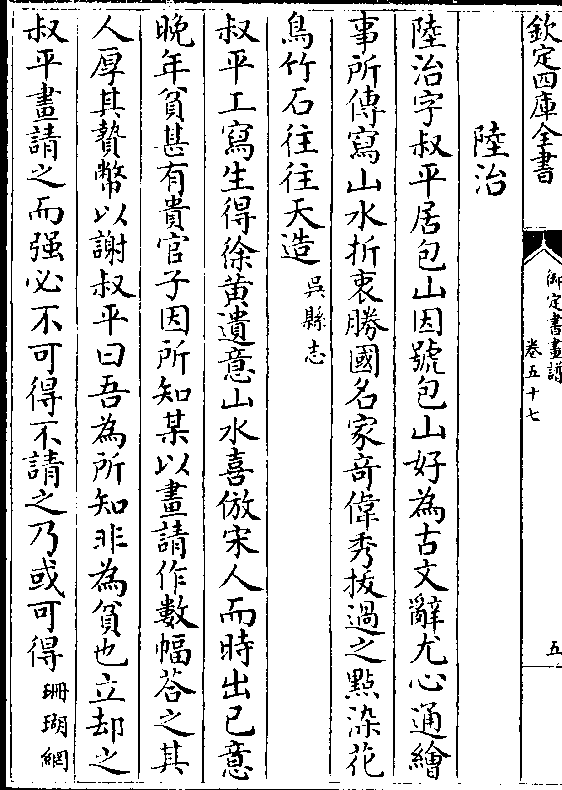 欽定四庫全書
御定書畫譜
卷五十七
五
陸治
陸治字叔平居包山因號包山好為古文辭尤心通繪
事所傳寫山水折衷勝國名家奇偉秀拔過之點染花
鳥竹石往往天造吳縣志
叔平工寫生得徐黃遺意山水喜倣宋人而時出己意
晚年貧甚有貴官子因所知某以畫請作數幅荅之其
人厚其贄幣以謝叔平曰吾為所知非為貧也立却之
叔平畫請之而强必不可得不請之乃或可得珊瑚網